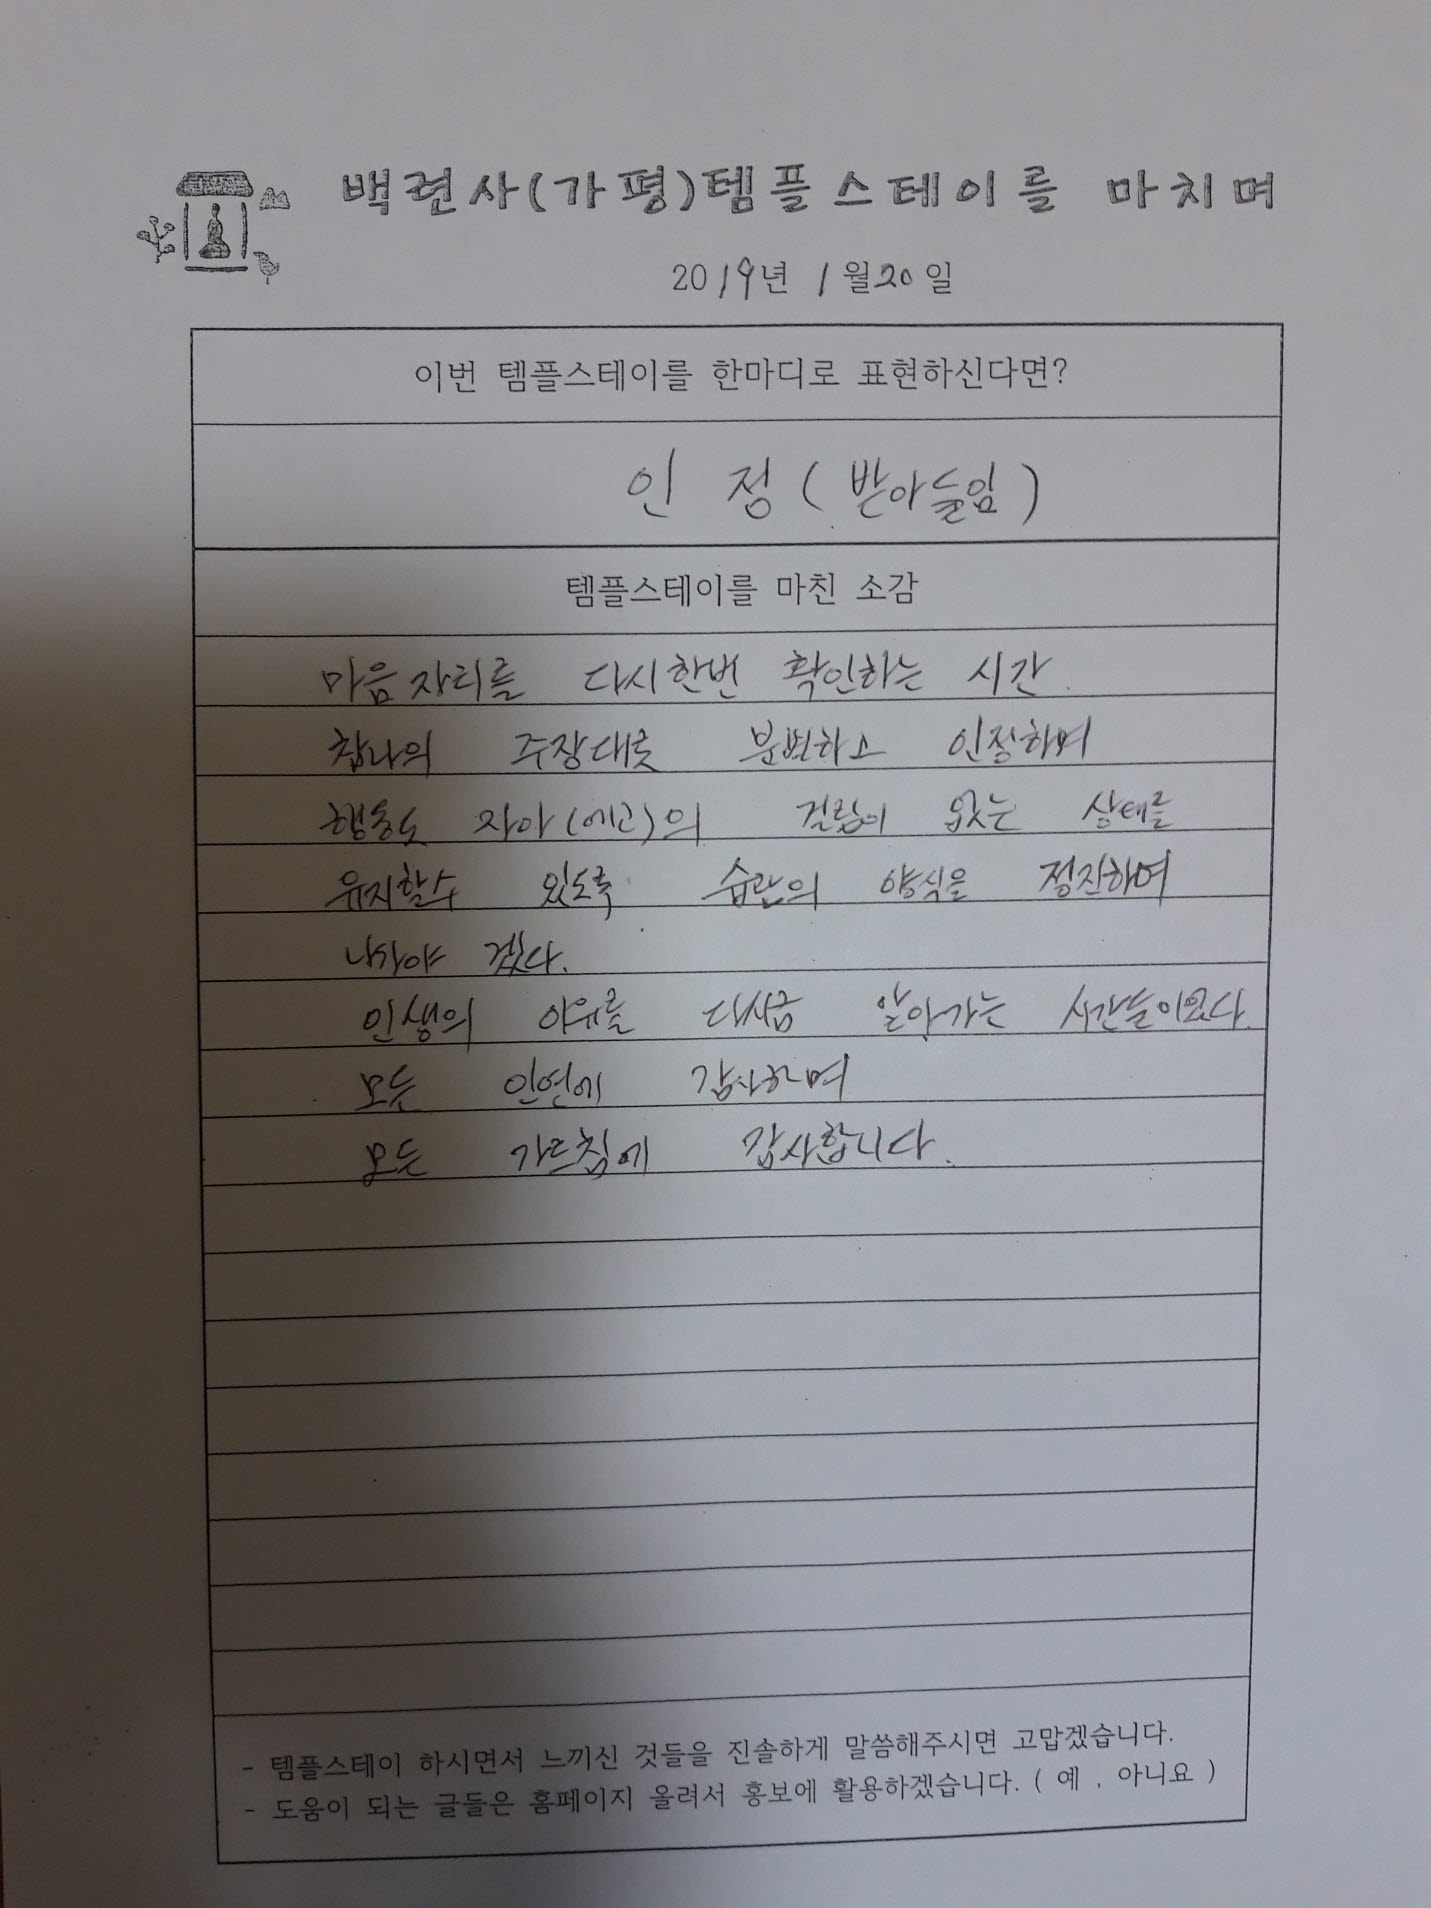 백련사(가평)템플스테이를 마치며
2019년 1월20일
이번 템플스테이를 한마디로 표현하신다면?
인 정 ( 받아들임 )
템플스테이를 마친 소감
마음자리를 다시한번 확인하는 시간.
참나의 주장대로 분별하고 인정하며
행동도 자아(에고)의 걸림이 없는 상태를
유지할수 있도록 습관의 양식을 정진하며
나가야 겠다.
인생의 이유를 다시금 알아가는 시간들이었다.
모든 인연에 감사하며
모든 가르침에 감사합니다.
- 템플스테이 하시면서 느끼신 것들을 진솔하게 말씀해주시면 고맙겠습니다.
- 도움이 되는 글들은 홈페이지 올려서 홍보에 활용하겠습니다. ( 예 , 아니요 )